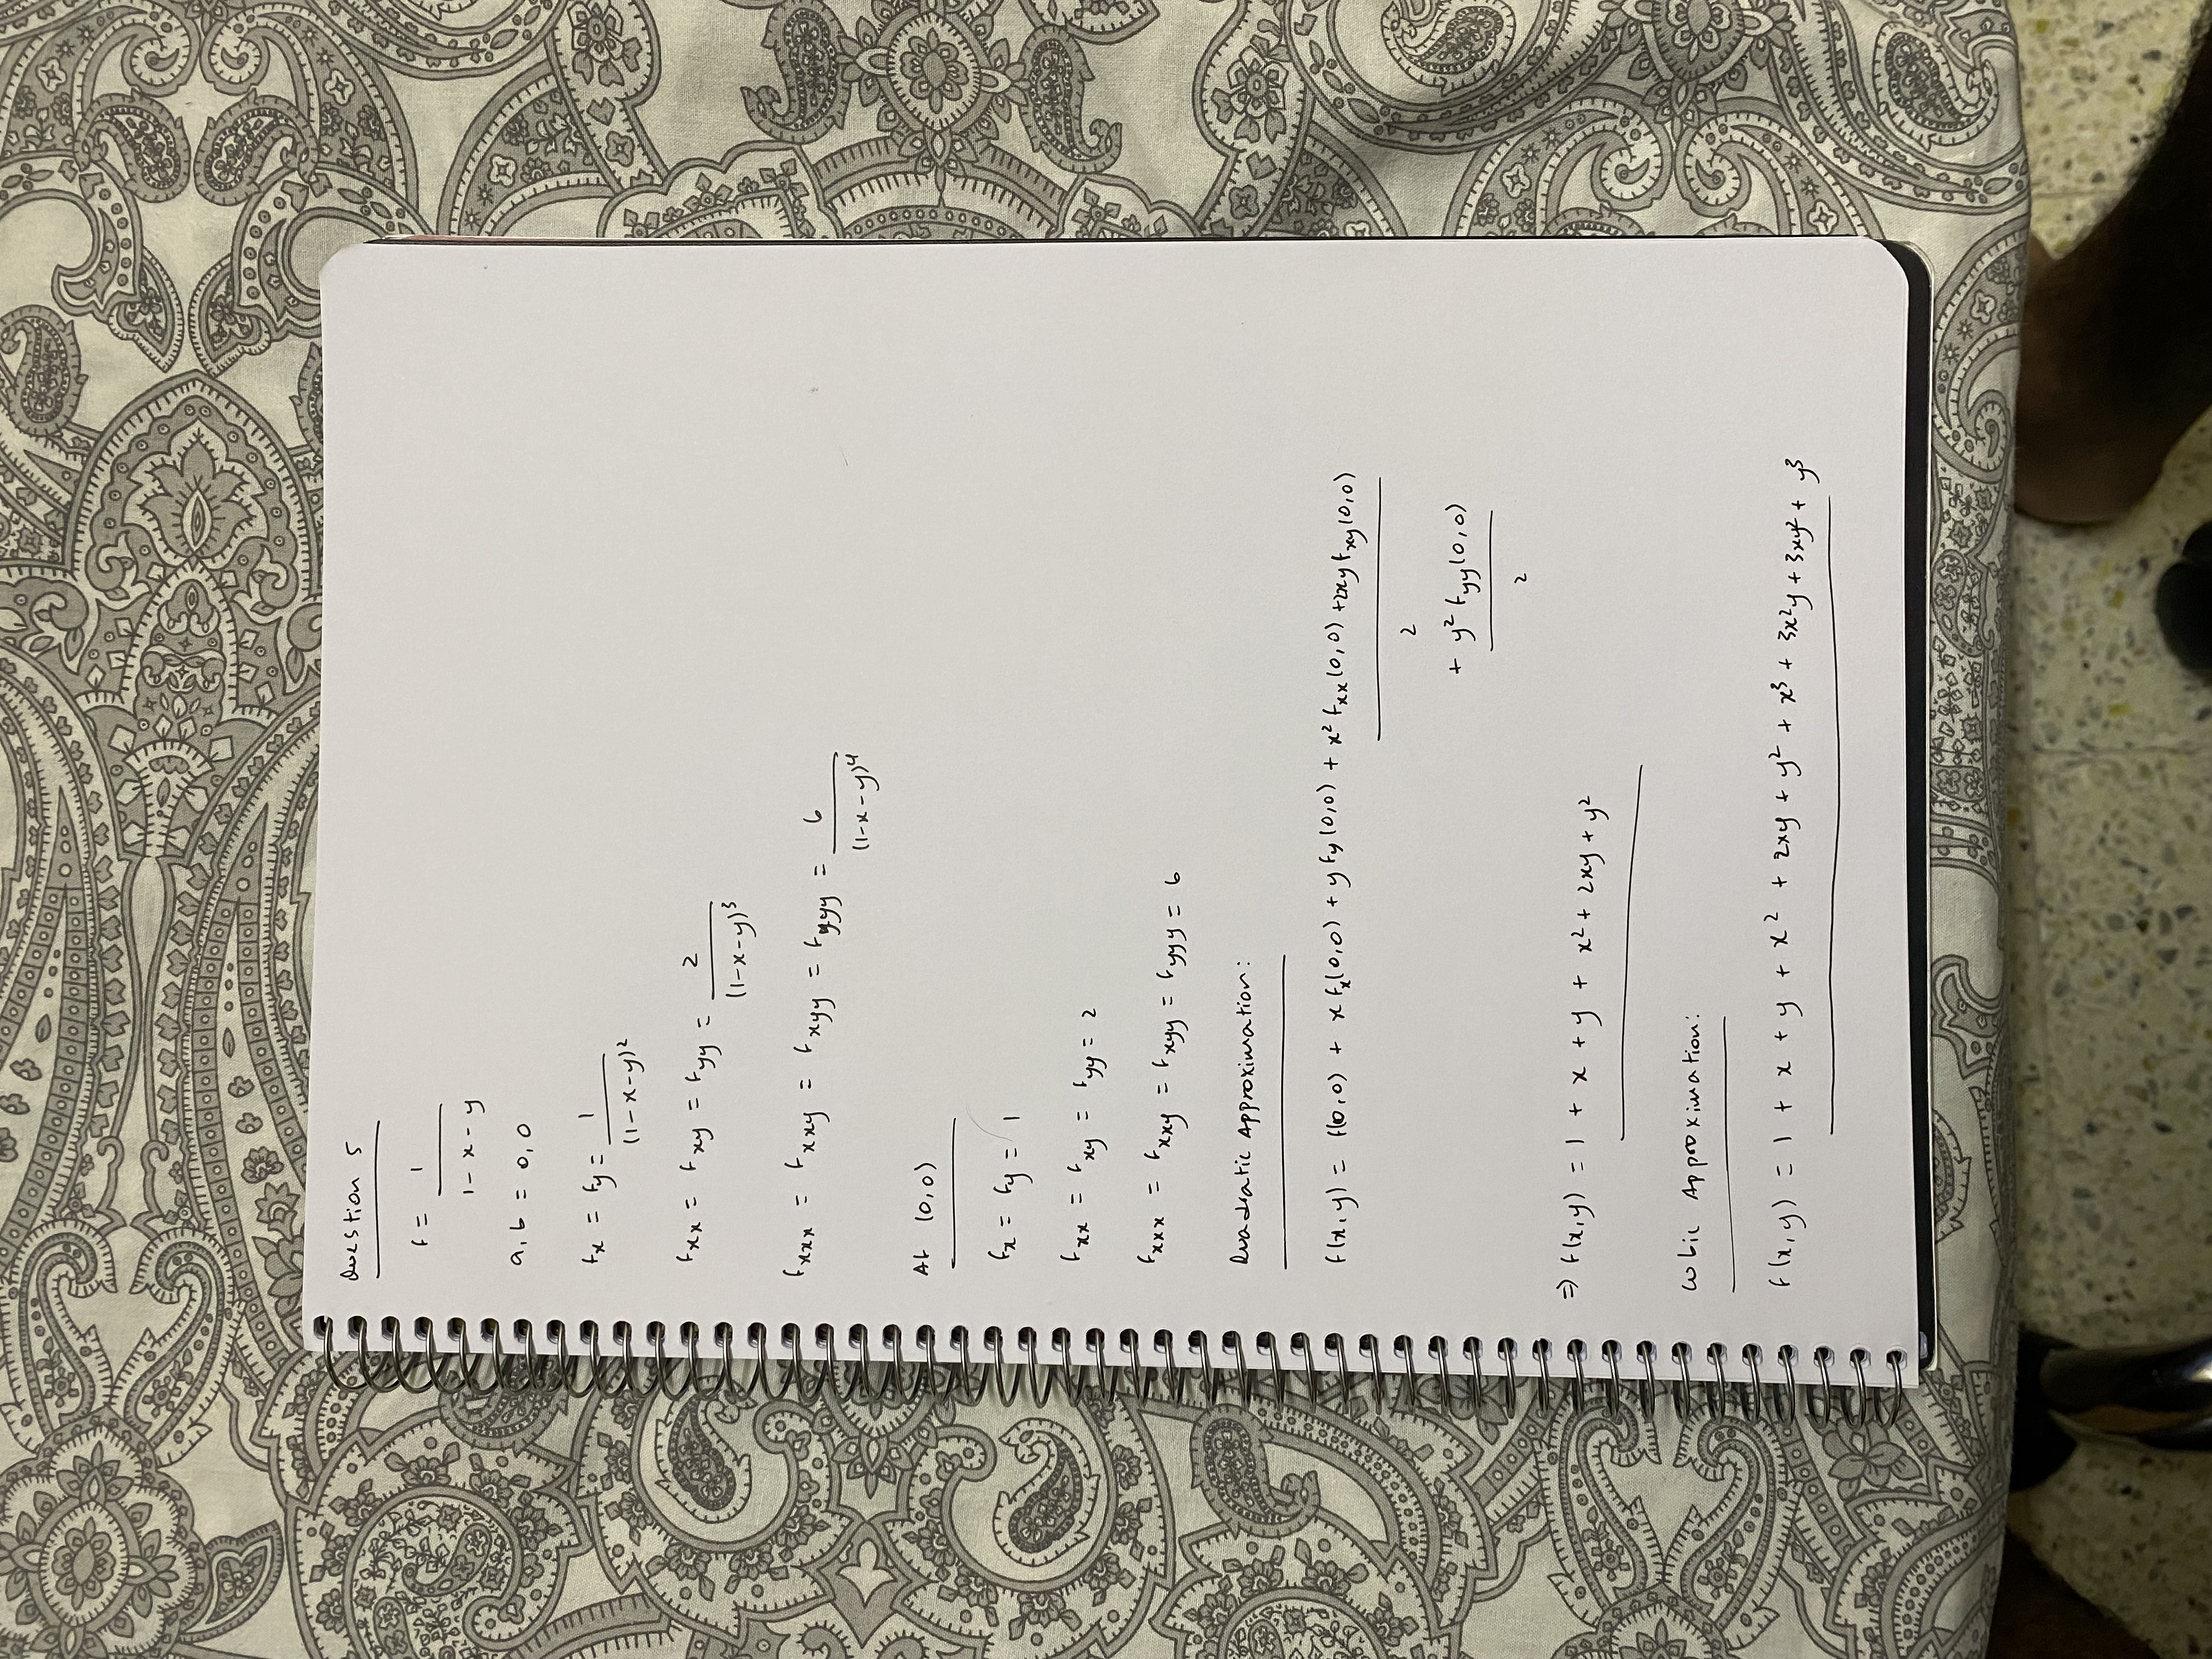 Question 5
f = 1 / (1 - x - y)
a, b = 0, 0
fx = fy = 1 / (1-x-y)²
fxx = fxy = fyy = 2 / (1-x-y)³
fxxx = fxxy = fxyy = fyyy = 6 / (1-x-y)⁴
At (0,0)
fx = fy = 1
fxx = fxy = fyy = 2
fxxx = fxxy = fxyy = fyyy = 6
Quadratic Approximation:
f(x,y) = f(0,0) + x fx(0,0) + y fy(0,0) + x² fxx(0,0) + 2xy fxy(0,0) / 2
+ y² fyy(0,0) / 2
⇒ f(x,y) = 1 + x + y + x² + 2xy + y²
Cubic Approximation:
f(x,y) = 1 + x + y + x² + 2xy + y² + x³ + 3x²y + 3xy² + y³